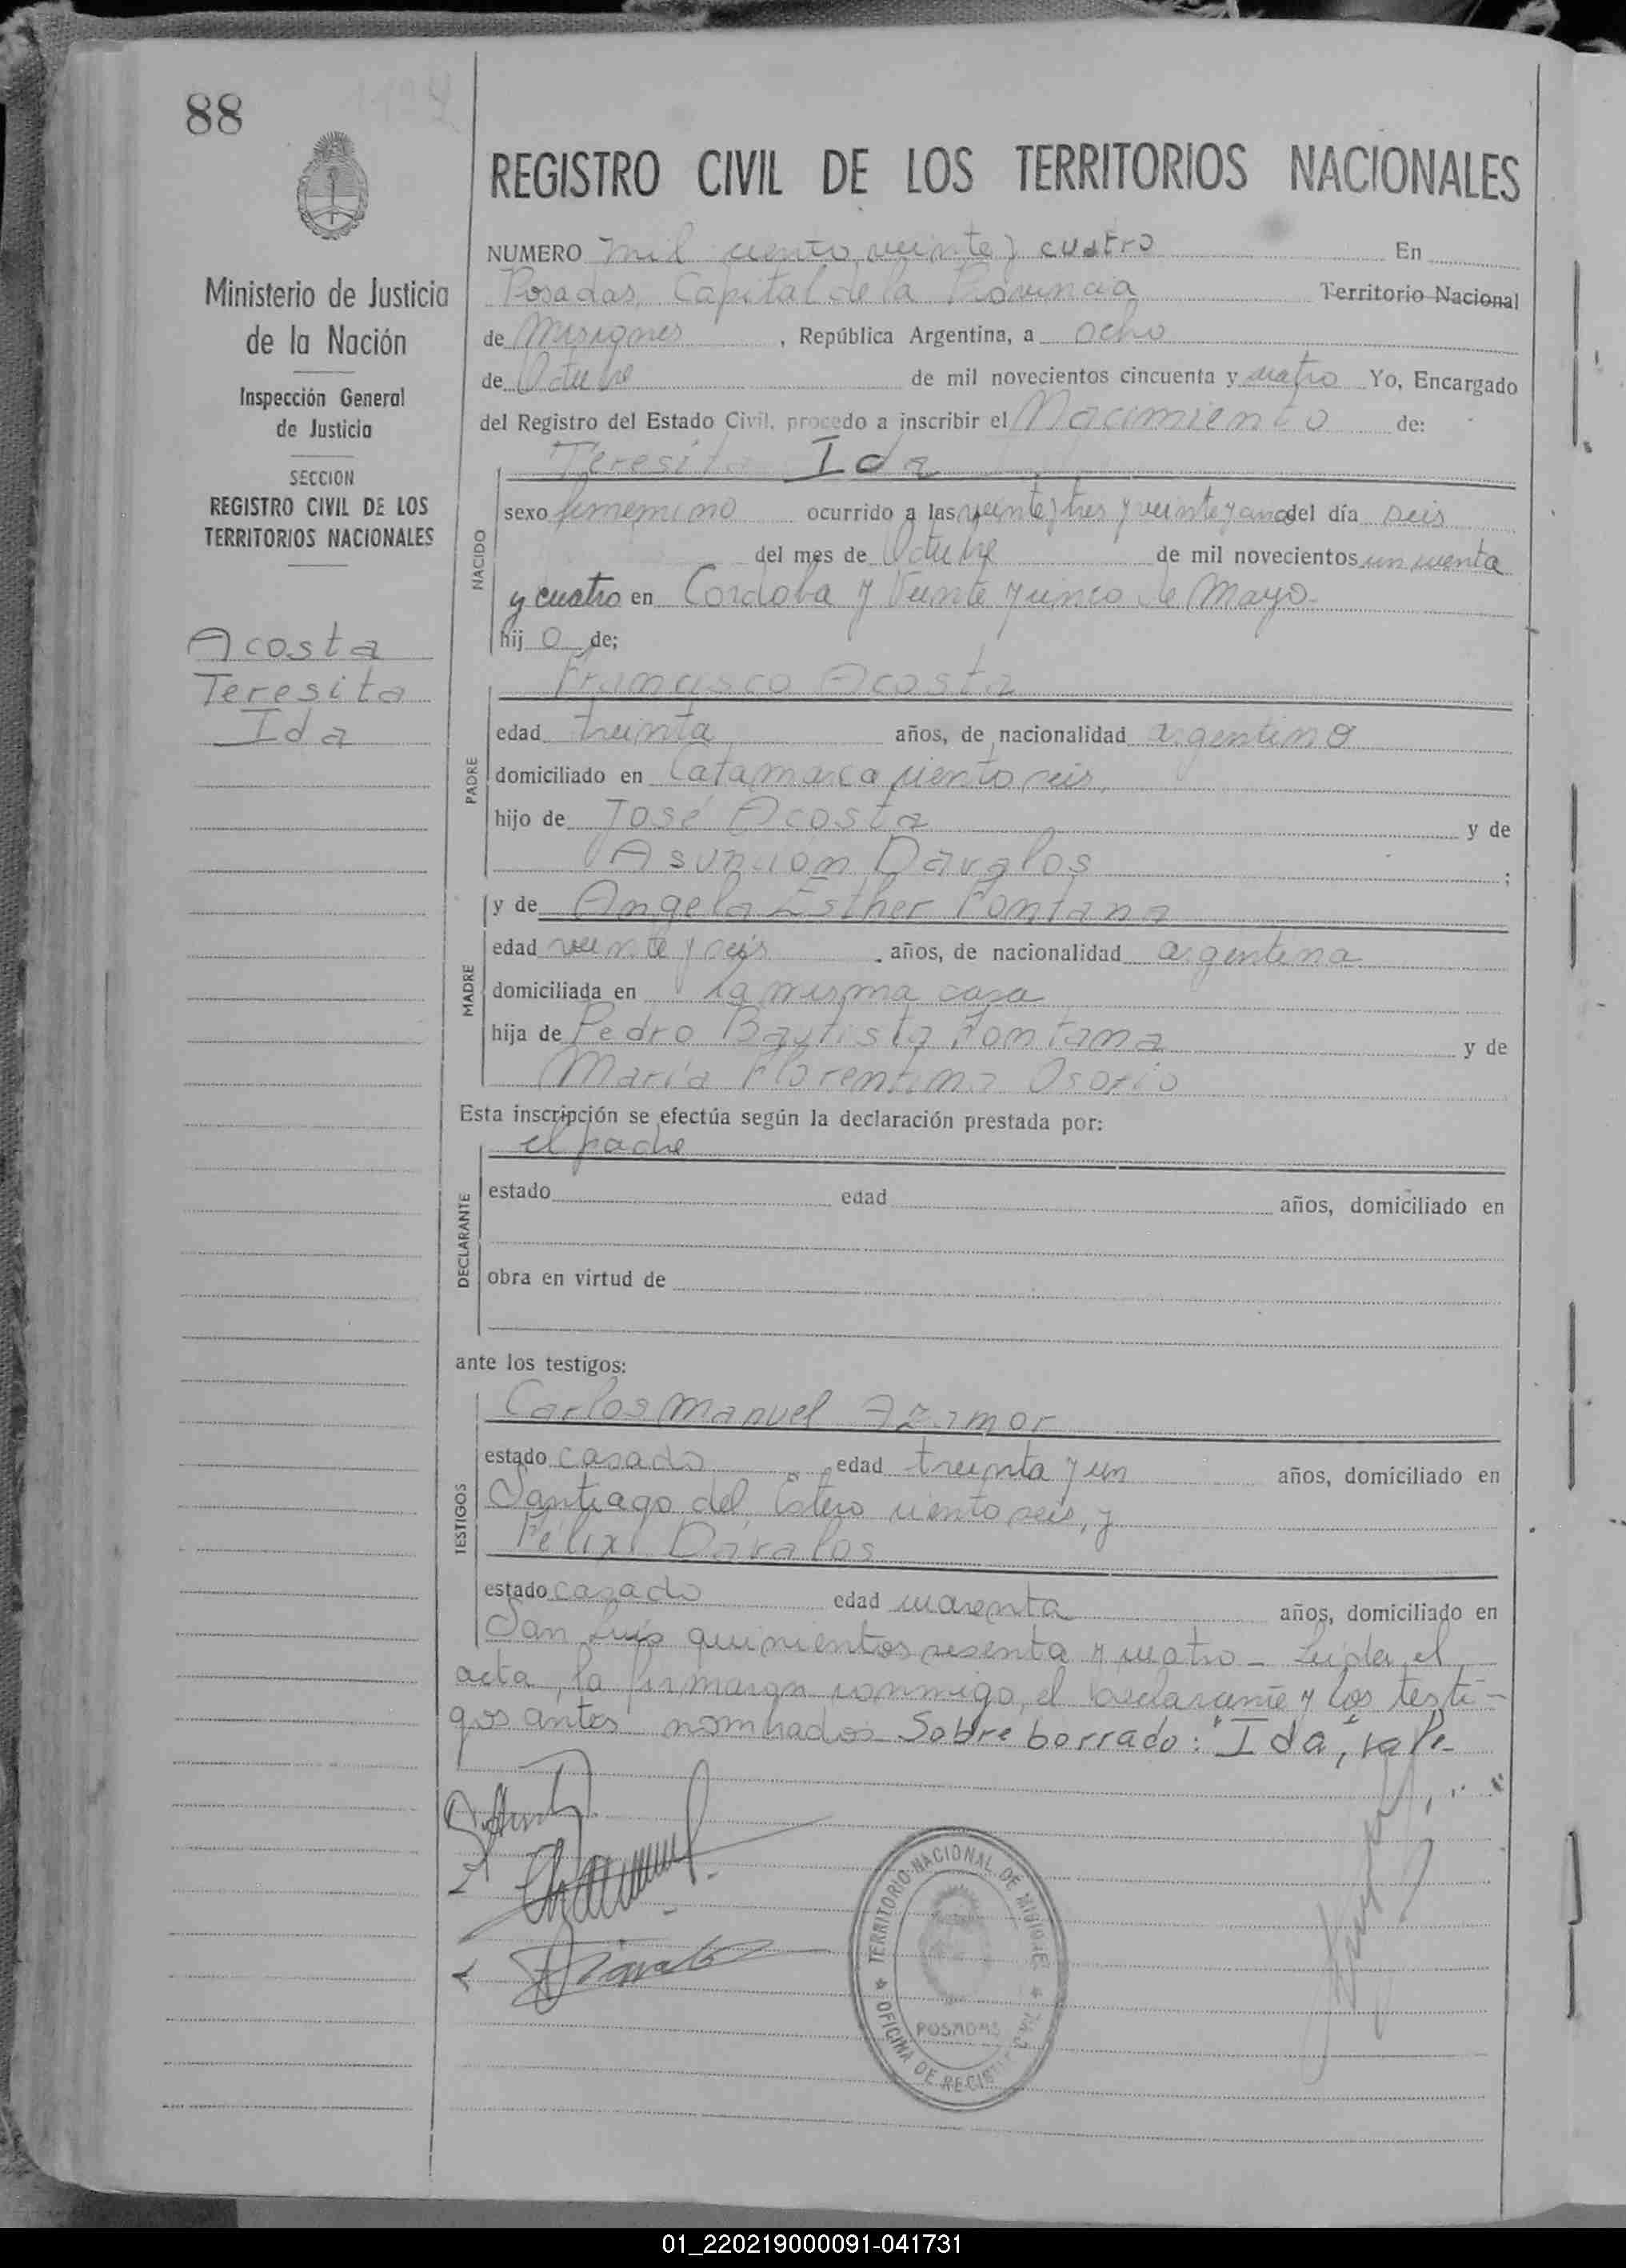 88
REGISTRO CIVIL DE LOS TERRITORIOS NACIONALES
Ministerio de Justicia
de la Nación
Inspección General
de Justicia
SECCION
REGISTRO CIVIL DE LOS
TERRITORIOS NACIONALES
Acosta
Teresita
Ida
NUMERO mil ciento veinte y cuatro En
Posadas, Capital de la Provincia Territorio Nacional
de Misiones, República Argentina, a ocho
de Octubre de mil novecientos cincuenta y cuatro Yo, Encargado
del Registro del Estado Civil, procedo a inscribir el Nacimiento de:
Teresita Ida
NACIDO
sexo femenino ocurrido a las veinte y tres y veinte y cinco del día seis
del mes de Octubre de mil novecientos cincuenta
y cuatro en Cordoba y Veinte y cinco de Mayo-
hij o de;
PADRE
Francisco Acosta
edad treinta años, de nacionalidad argentino
domiciliado en Catamarca ciento seis,
hijo de José Acosta y de
Asunción Davalos ;
MADRE
y de Angela Esther Fontana
edad veinte y seis años, de nacionalidad argentina
domiciliada en la misma casa
hija de Pedro Bautista Fontana y de
María Florentina Osorio
Esta inscripción se efectúa según la declaración prestada por:
DECLARANTE
el padre
estado edad años, domiciliado en
obra en virtud de
ante los testigos:
TESTIGOS
Carlos Manuel Azamor
estado casado edad treinta y un años, domiciliado en
Santiago del Estero ciento seis, y
Félix Davalos
estado casado edad cuarenta años, domiciliado en
San Luis quinientos sesenta y cuatro - Leida el
acta, la firmaron conmigo, el declarante y los testi-
gos antes nombrados- Sobre borrado: "Ida", vale-
TERRITORIO NACIONAL DE MISIONES
POSADAS
OFICINA DE REGISTRO CIVIL
01_220219000091-041731